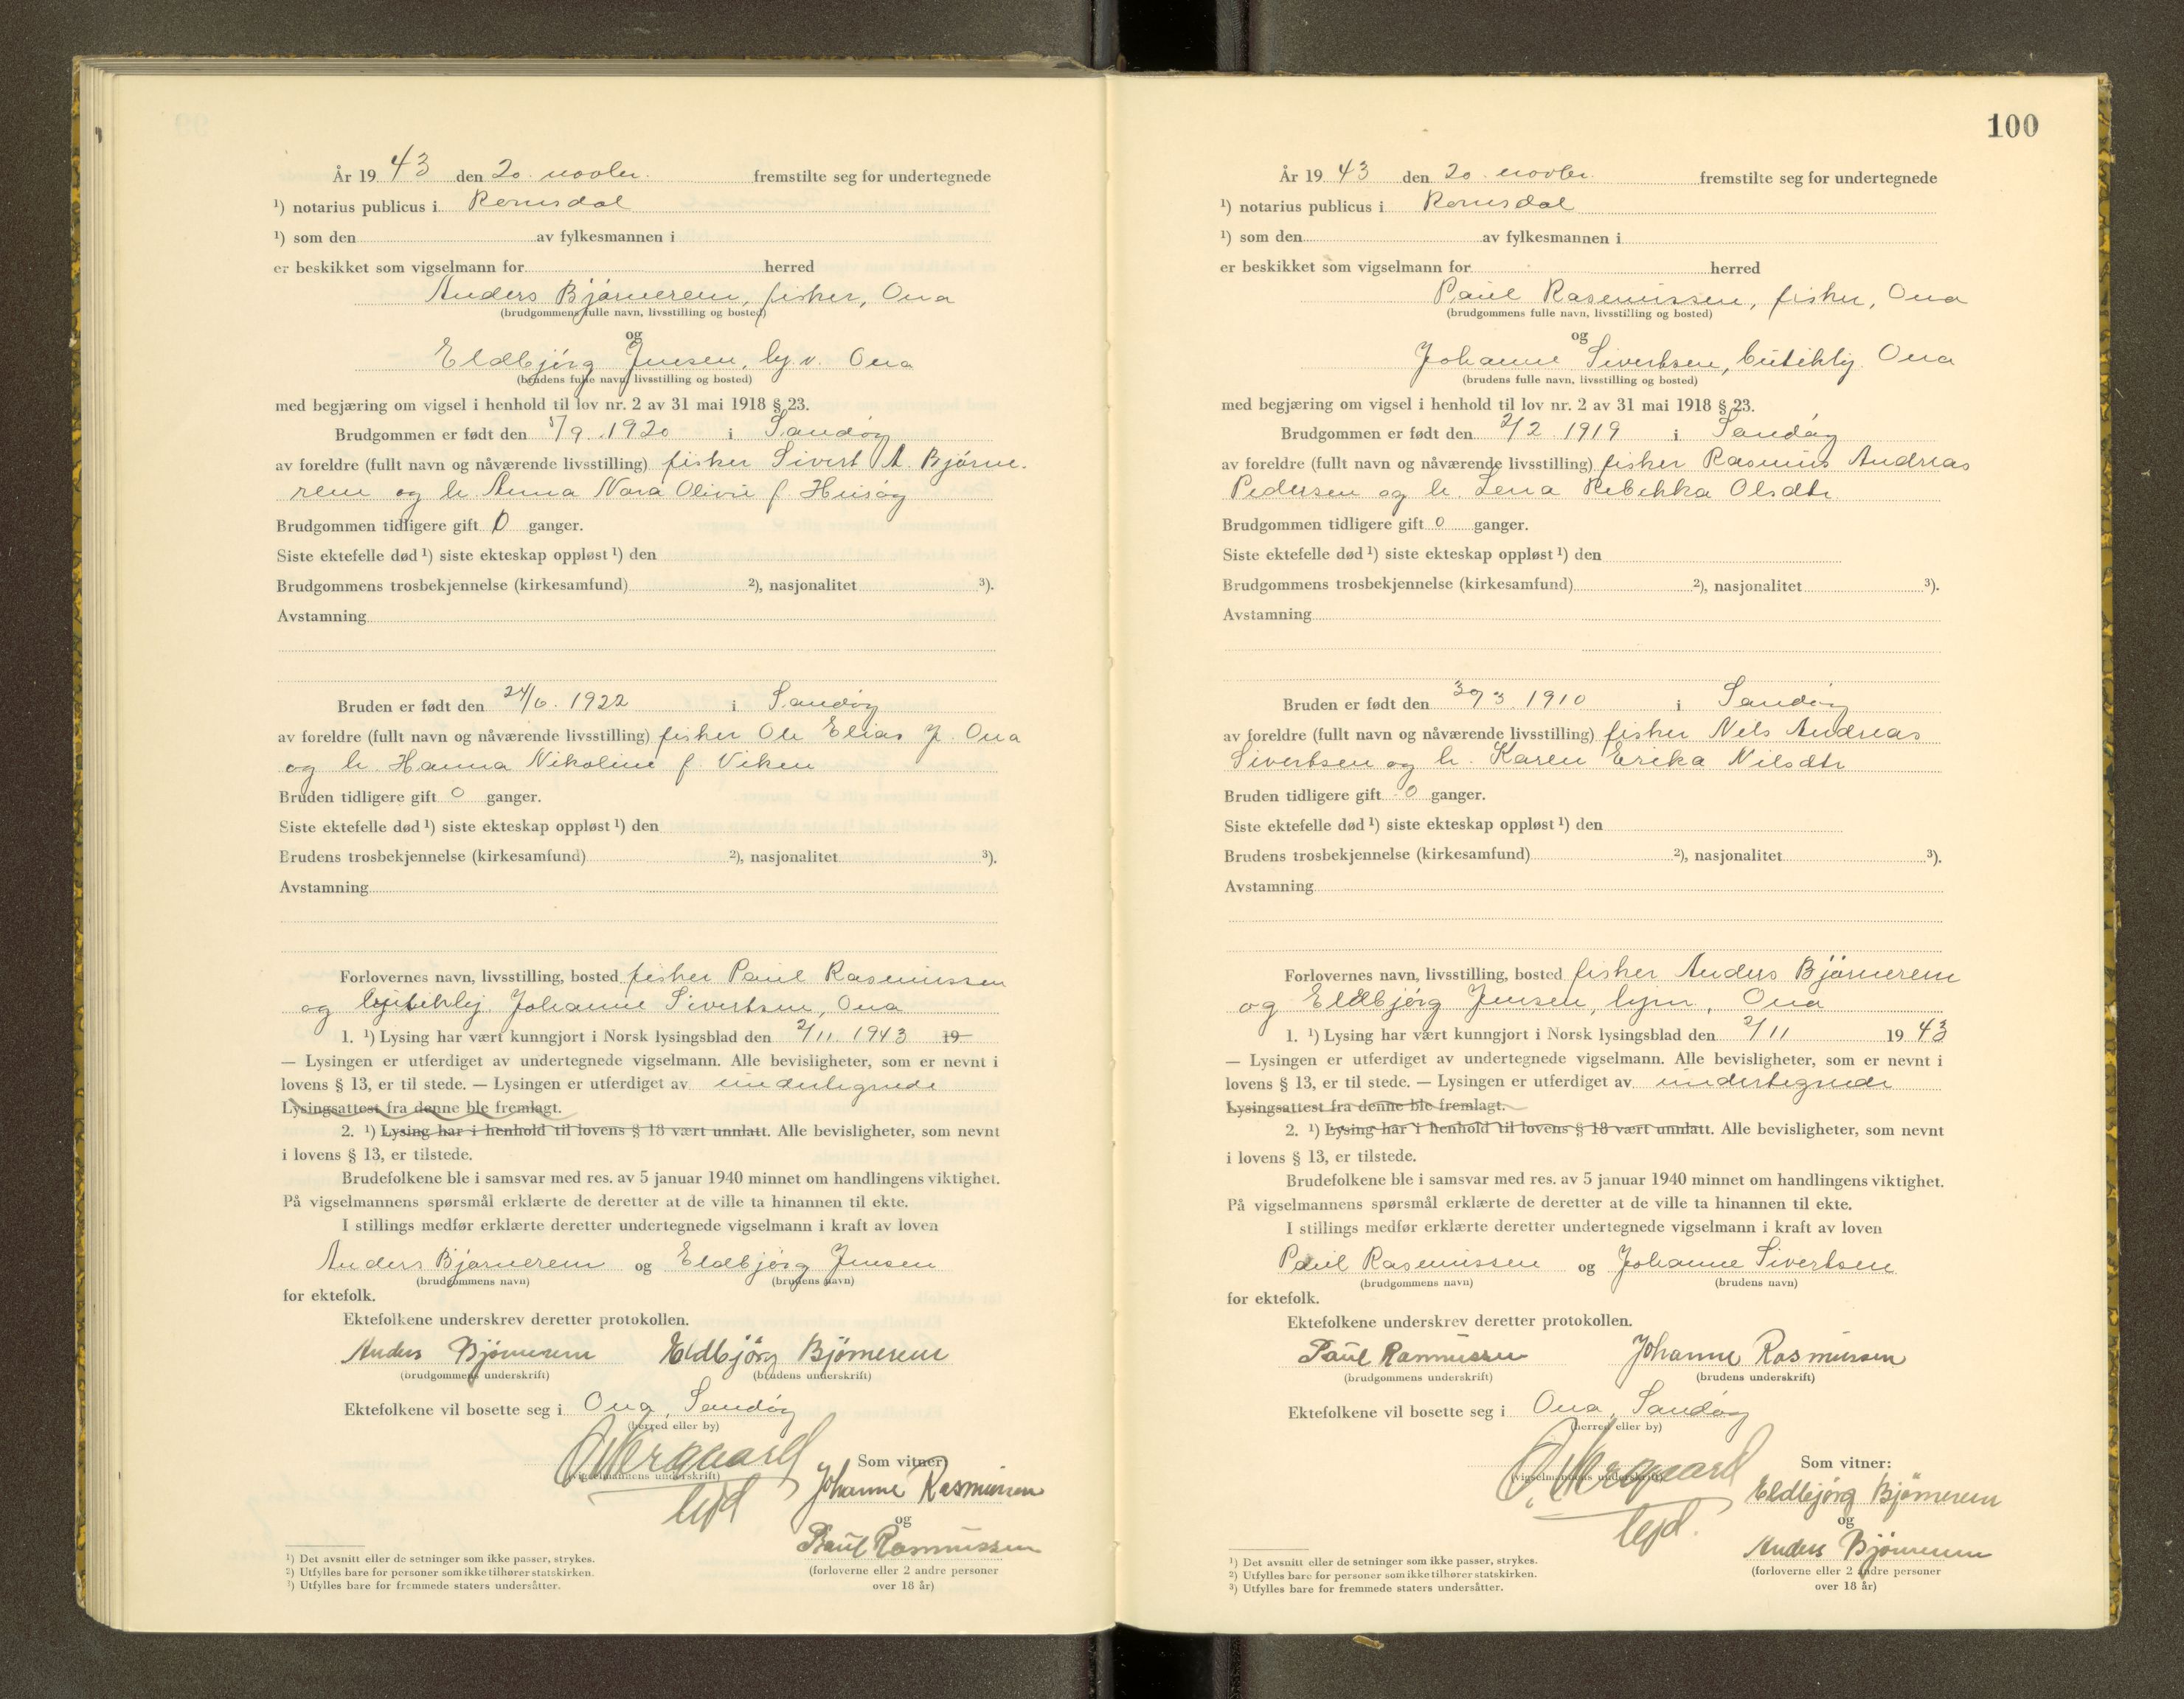 År 19 43 den 20. novbr. fremstilte seg for undertegnede
¹) notarius publicus i Romsdal
¹) som den av fylkesmannen i
er beskikket som vigselmann for herred
Anders Bjørnerem, fisker, Ona
(brudgommens fulle navn, livsstilling og bosted)
og
Eldbjørg Jensen, hj.v. Ona
(brudens fulle navn, livsstilling og bosted)
med begjæring om vigsel i henhold til lov nr. 2 av 31 mai 1918 § 23.
Brudgommen er født den 5/9 1920 i Sandøy
av foreldre (fullt navn og nåværende livsstilling) fisker Sivert A. Bjørne-
rem og h. Anna Nora Olivie f. Husøy
Brudgommen tidligere gift 0 ganger.
Siste ektefelle død ¹) siste ekteskap oppløst ¹) den
Brudgommens trosbekjennelse (kirkesamfund) ²), nasjonalitet ³).
Avstamning
Bruden er født den 24/6. 1922 i Sandøy
av foreldre (fullt navn og nåværende livsstilling) fisker Ole Elias J. Ona
og h. Hanna Nikoline f. Viken
Bruden tidligere gift 0 ganger.
Siste ektefelle død ¹) siste ekteskap oppløst ¹) den
Brudens trosbekjennelse (kirkesamfund) ²), nasjonalitet ³).
Avstamning
Forlovernes navn, livsstilling, bosted fisker Paul Rasmussen
og butikkbj. Johanne Sivertsen, Ona
1. ¹) Lysing har vært kunngjort i Norsk lysingsblad den 2/11 1943 19
— Lysingen er utferdiget av undertegnede vigselmann. Alle bevisligheter, som er nevnt i
lovens § 13, er til stede. — Lysingen er utferdiget av undertegnede
Lysingsattest fra denne ble fremlagt.
2. ¹) Lysing har i henhold til lovens § 18 vært unnlatt. Alle bevisligheter, som nevnt
i lovens § 13, er tilstede.
Brudefolkene ble i samsvar med res. av 5 januar 1940 minnet om handlingens viktighet.
På vigselmannens spørsmål erklærte de deretter at de ville ta hinannen til ekte.
I stillings medfør erklærte deretter undertegnede vigselmann i kraft av loven
Anders Bjørnerem og Eldbjørg Jensen
(brudgommens navn) (brudens navn)
for ektefolk.
Ektefolkene underskrev deretter protokollen.
Anders Bjørnerem Eldbjørg Bjørnerem
(brudgommens underskrift) (brudens underskrift)
Ektefolkene vil bosette seg i Ona, Sandøy
(herred eller by)
Som vitner:
(vigselmannens underskrift)
Johanne Rasmussen
og
Paul Rasmussen
(forloverne eller 2 andre personer
over 18 år)
¹) Det avsnitt eller de setninger som ikke passer, strykes.
²) Utfylles bare for personer som ikke tilhører statskirken.
³) Utfylles bare for fremmede staters undersåtter.
100
År 19 43 den 20. novbr. fremstilte seg for undertegnede
¹) notarius publicus i Romsdal
¹) som den av fylkesmannen i
er beskikket som vigselmann for herred
Paul Rasmussen, fisker, Ona
(brudgommens fulle navn, livsstilling og bosted)
og
Johanne Sivertsen, butikkbj. Ona
(brudens fulle navn, livsstilling og bosted)
med begjæring om vigsel i henhold til lov nr. 2 av 31 mai 1918 § 23.
Brudgommen er født den 2/2 1919 i Sandøy
av foreldre (fullt navn og nåværende livsstilling) fisker Rasmus Andreas
Pedersen og h. Lena Rebekka Olsdtr
Brudgommen tidligere gift 0 ganger.
Siste ektefelle død ¹) siste ekteskap oppløst ¹) den
Brudgommens trosbekjennelse (kirkesamfund) ²), nasjonalitet ³).
Avstamning
Bruden er født den 30/3. 1910 i Sandøy
av foreldre (fullt navn og nåværende livsstilling) fisker Nils Andreas
Sivertsen og h. Karen Erika Nilsdtr
Bruden tidligere gift 0 ganger.
Siste ektefelle død ¹) siste ekteskap oppløst ¹) den
Brudens trosbekjennelse (kirkesamfund) ²), nasjonalitet ³).
Avstamning
Forlovernes navn, livsstilling, bosted fisker Anders Bjørnerem
og Eldbjørg Jensen, hjv., Ona
1. ¹) Lysing har vært kunngjort i Norsk lysingsblad den 2/11 19 43
— Lysingen er utferdiget av undertegnede vigselmann. Alle bevisligheter, som er nevnt i
lovens § 13, er til stede. — Lysingen er utferdiget av undertegnede
Lysingsattest fra denne ble fremlagt.
2. ¹) Lysing har i henhold til lovens § 18 vært unnlatt. Alle bevisligheter, som nevnt
i lovens § 13, er tilstede.
Brudefolkene ble i samsvar med res. av 5 januar 1940 minnet om handlingens viktighet.
På vigselmannens spørsmål erklærte de deretter at de ville ta hinannen til ekte.
I stillings medfør erklærte deretter undertegnede vigselmann i kraft av loven
Paul Rasmussen og Johanne Sivertsen
(brudgommens navn) (brudens navn)
for ektefolk.
Ektefolkene underskrev deretter protokollen.
Paul Rasmussen Johanne Rasmussen
(brudgommens underskrift) (brudens underskrift)
Ektefolkene vil bosette seg i Ona, Sandøy
(herred eller by)
Som vitner:
(vigselmannens underskrift)
Eldbjørg Bjørnerem
og
Anders Bjørnerem
(forloverne eller 2 andre personer
over 18 år)
¹) Det avsnitt eller de setninger som ikke passer, strykes.
²) Utfylles bare for personer som ikke tilhører statskirken.
³) Utfylles bare for fremmede staters undersåtter.